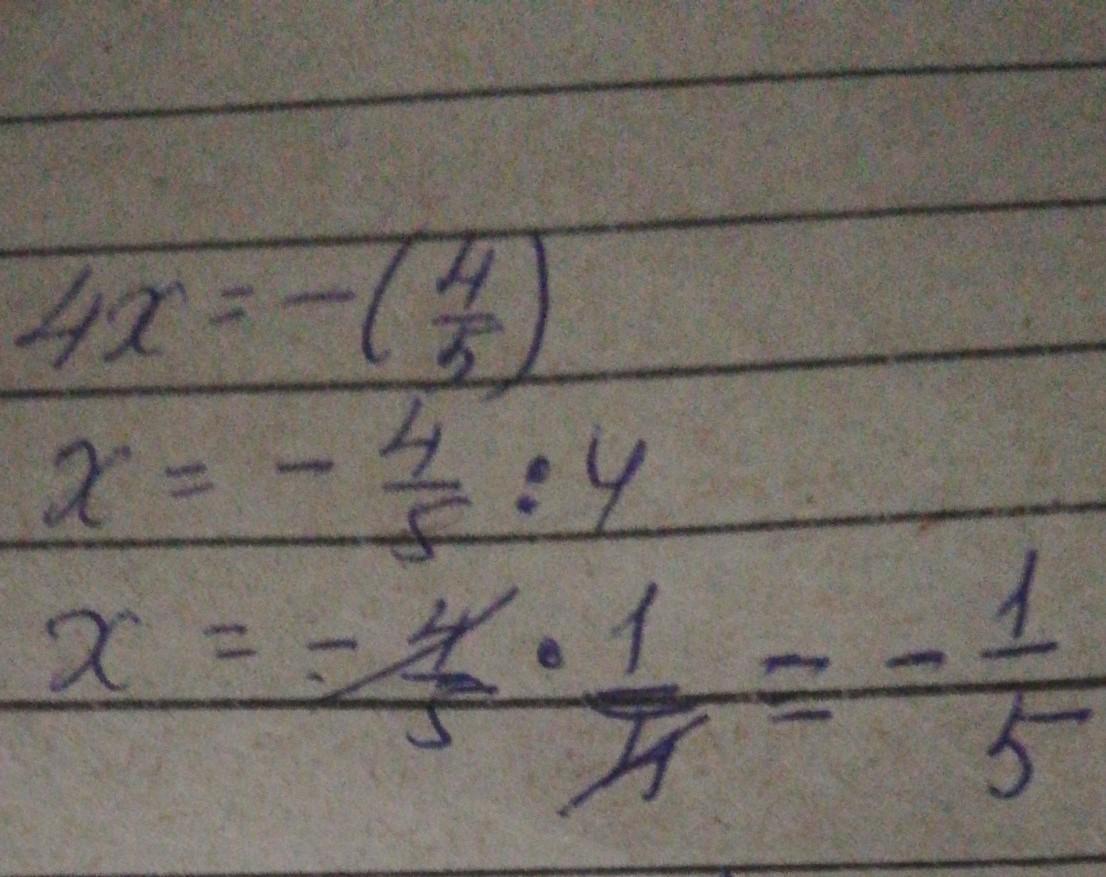 4x = -(4/5)
x = - 4/5 : 4
x = - 4/5 · 1/4 = - 1/5